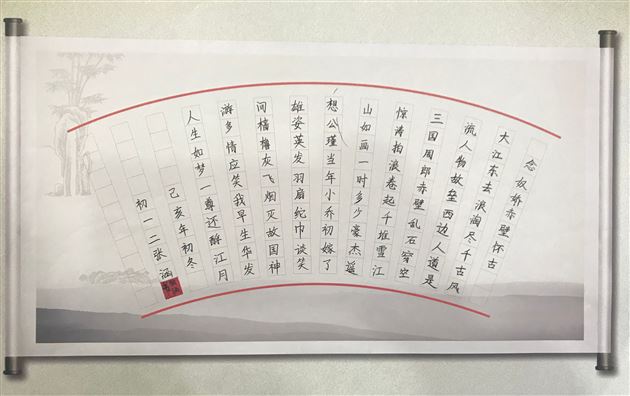 念奴娇赤壁怀古
大江东去浪淘尽千古风
流人物故垒西边人道是
三国周郎赤壁乱石穿空
惊涛拍浪卷起千堆雪江
山如画一时多少豪杰遥
想公瑾当年小乔初嫁了
雄姿英发羽扇纶巾谈笑
间樯橹灰飞烟灭故国神
游多情应笑我早生华发
人生如梦一尊还酹江月
己亥年初冬
初一二张涵